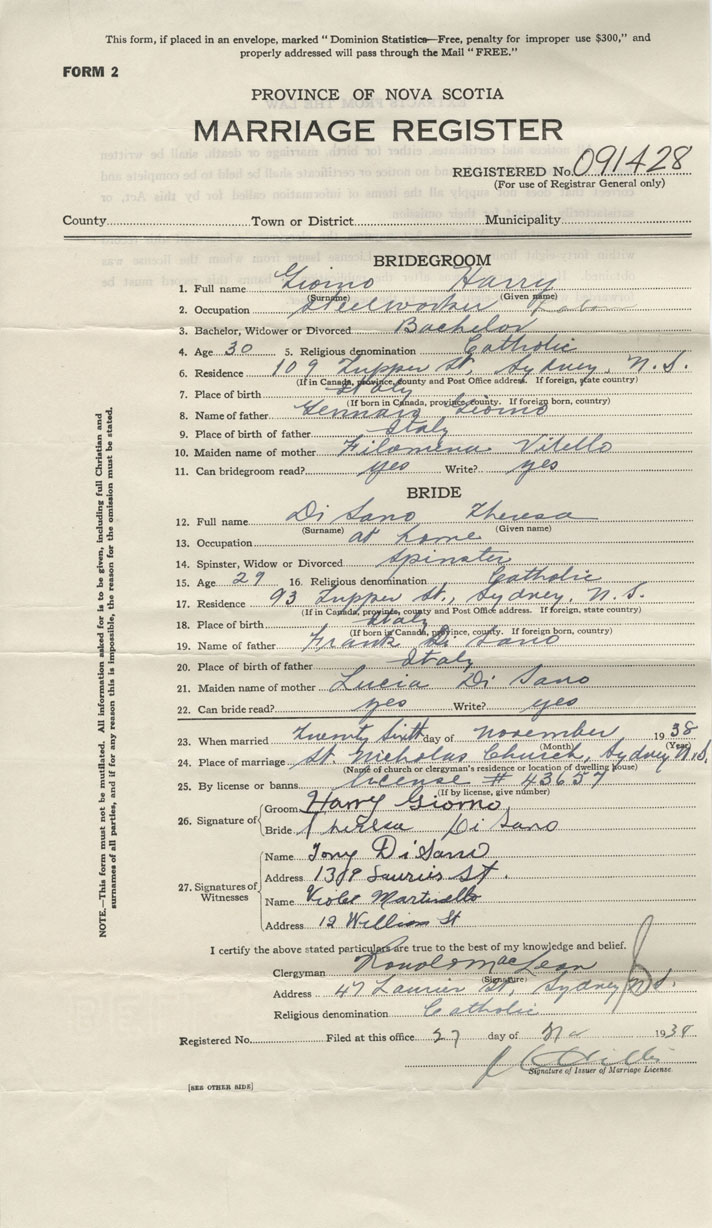 This form, if placed in an envelope, marked "Dominion Statistics—Free, penalty for improper use $300," and
properly addressed will pass through the Mail "FREE."
FORM 2
PROVINCE OF NOVA SCOTIA
MARRIAGE REGISTER
REGISTERED No. 091428
(For use of Registrar General only)
County Town or District Municipality
BRIDEGROOM
1. Full name Giorno Harry
(Surname) (Given name)
2. Occupation Steelworker Labor
3. Bachelor, Widower or Divorced Bachelor
4. Age 30 5. Religious denomination Catholic
6. Residence 109 Tupper St, Sydney, N.S.
(If in Canada, province, county and Post Office address. If foreign, state country)
7. Place of birth Italy
(If born in Canada, province, county. If foreign born, country)
8. Name of father Gennaro Giorno
9. Place of birth of father Italy
10. Maiden name of mother Filomena Vitello
11. Can bridegroom read? yes Write? yes
BRIDE
12. Full name Di Sano Theresa
(Surname) (Given name)
13. Occupation at home
14. Spinster, Widow or Divorced Spinster
15. Age 29 16. Religious denomination Catholic
17. Residence 93 Tupper St., Sydney, N.S.
(If in Canada, province, county and Post Office address. If foreign, state country)
18. Place of birth Italy
(If born in Canada, province, county. If foreign born, country)
19. Name of father Frank Di Sano
20. Place of birth of father Italy
21. Maiden name of mother Lucia Di Sano
22. Can bride read? yes Write? yes
23. When married Twenty Sixth day of November 1938
(Month) (Year)
24. Place of marriage St. Nicholas Church, Sydney N.S.
(Name of church or clergyman's residence or location of dwelling house)
25. By license or banns License # 43657
(If by license, give number)
26. Signature of
Groom Harry Giorno
Bride Theresa Di Sano
27. Signatures of Witnesses
Name Tony DiSano
Address Laurier St.
Name Violet Martinello
Address 12 William St
I certify the above stated particulars are true to the best of my knowledge and belief.
Clergyman Ronald MacLean
(Signature)
Address 47 Laurier St, Sydney N.S.
Religious denomination Catholic
Registered No. Filed at this office 27 day of 1938
Signature of Issuer of Marriage License.
[SEE OTHER SIDE]
NOTE.—This form must not be mutilated. All information asked for is to be given, including full Christian and
surnames of all parties, and if for any reason this is impossible, the reason for the omission must be stated.